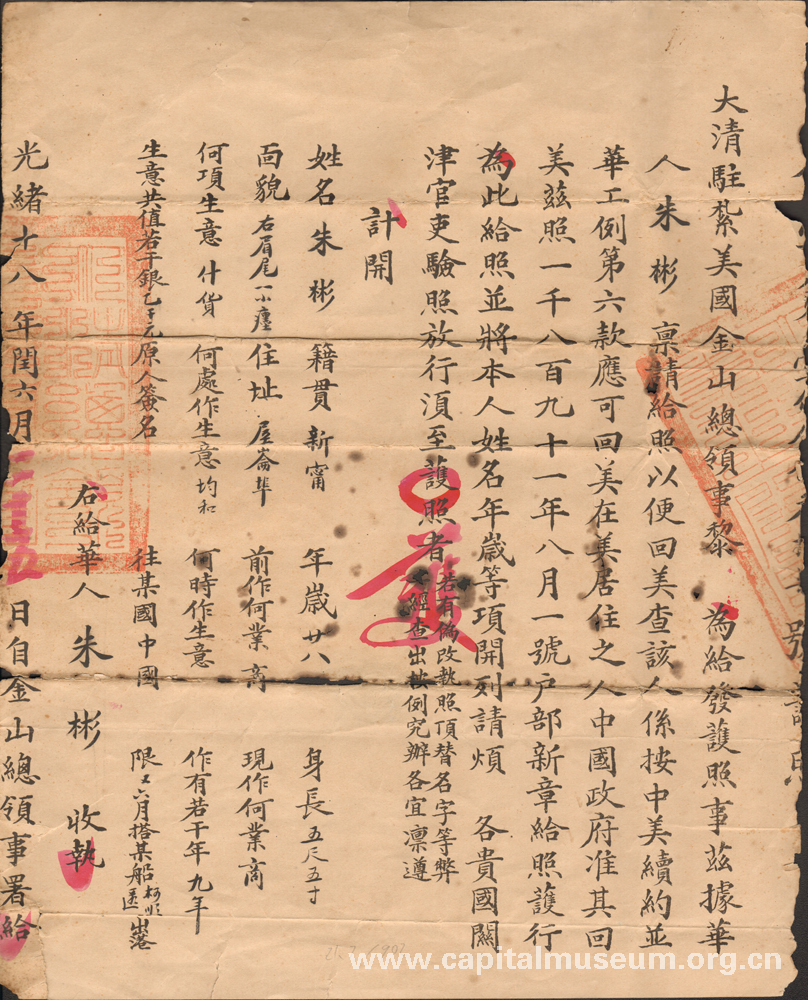 大清駐紮美國金山總領事黎　為給發護照事茲據華
人朱彬　稟請給照以便回美查該人係按中美續約並
華工例第六款應可回美在美居住之人中國政府准其回
美茲照一千八百九十一年八月一號戶部新章給照護行
為此給照並將本人姓名年歲等項開列請煩　各貴國關
津官吏驗照放行須至護照者
若有偽改執照頂替名字等弊
一經查出按例究辦各宜凜遵
計開
姓名朱彬　籍貫新甯　年歲廿八　身長五尺五寸
面貌右眉尾一小㾗　住址屋崙埠　前作何業商　現作何業商
何項生意什貨　何處作生意均和　何時作生意　作有若干年九年
生意共值若干銀　元原人簽名　往某國中國　限　六月搭某船　出港
右給華人朱彬　收執
光緒十八年閏六月　日自金山總領事署給
www.capitalmuseum.org.cn